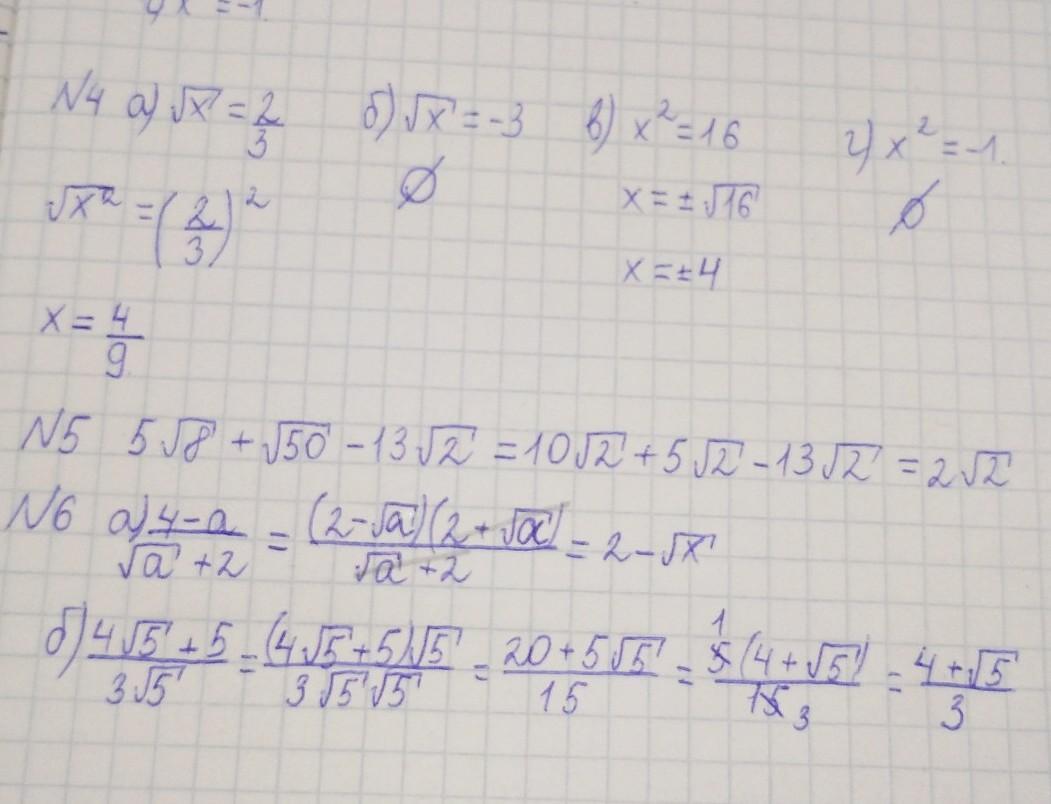 г) x² = -1.
№4 а) √x = 2/3 б) √x = -3 в) x² = 16 г) x² = -1.
√x² = (2/3)² ∅ x = ±√16 ∅
x = ±4
x = 4/9
№5 5√8 + √50 - 13√2 = 10√2 + 5√2 - 13√2 = 2√2
№6 а) (4-a)/(√a + 2) = ((2-√a)(2+√a))/(√a + 2) = 2 - √x
б) (4√5 + 5)/(3√5) = ((4√5 + 5)√5)/(3√5√5) = (20 + 5√5)/15 = (5 1 (4 + √5))/(15 3) = (4 + √5)/3